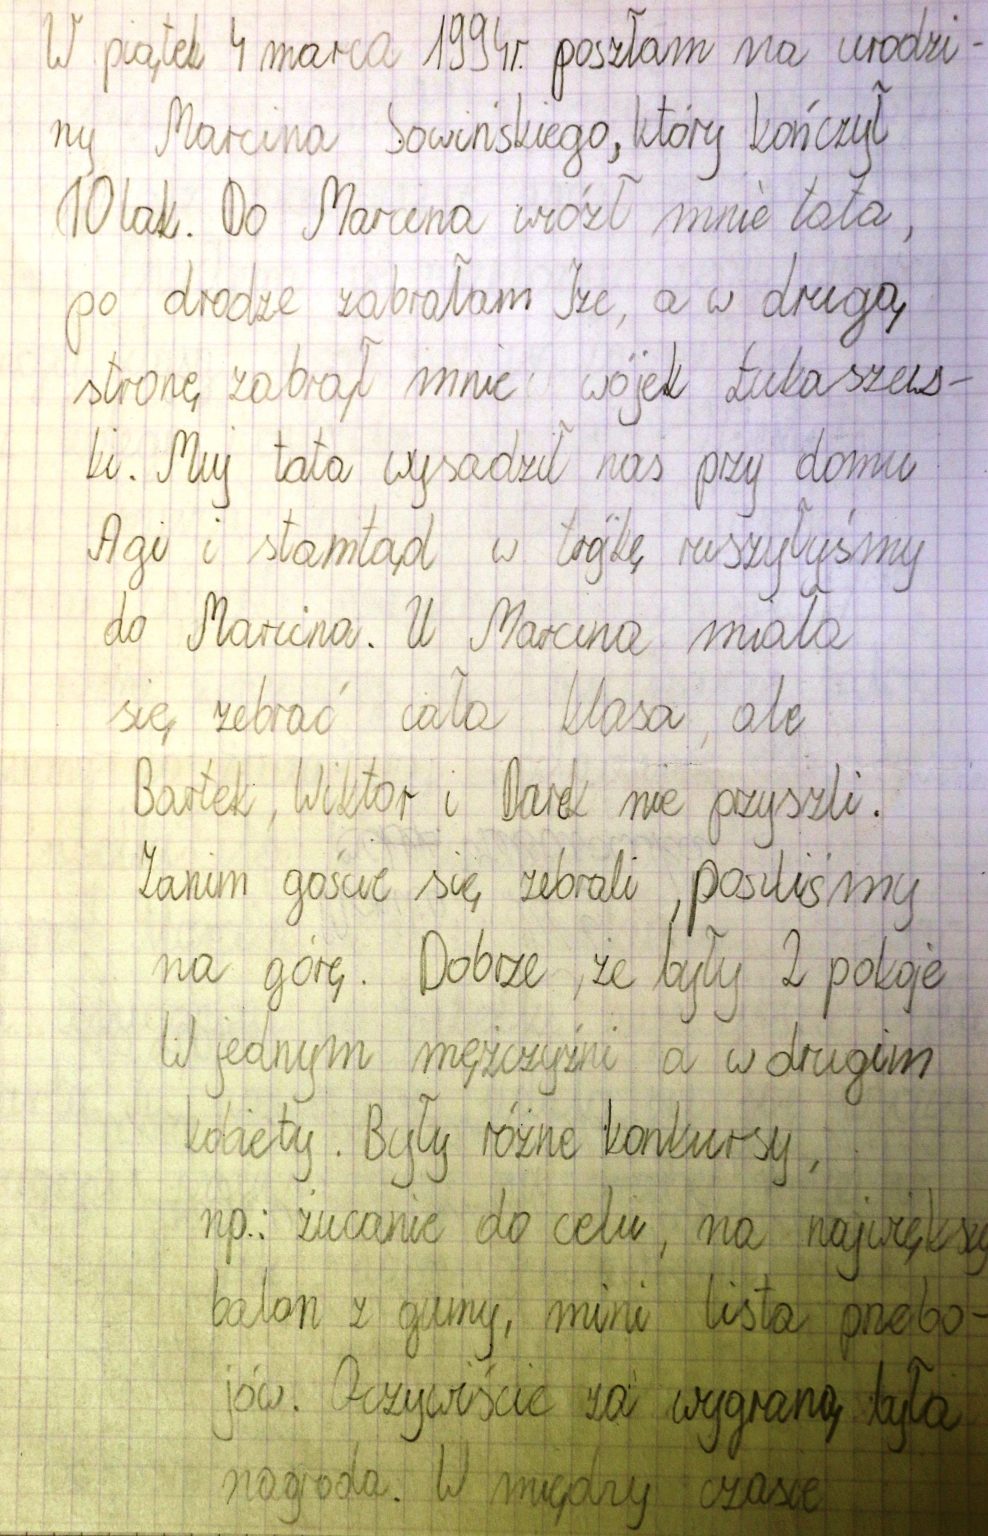 W piątek 4 marca 1994r. poszłam na urodzi-
ny Marcina Sowińskiego, który kończył
10 lak. Do Marcina wiózł mnie tata,
po drodze zabrałam Ize, a w drugą
stronę zabrął mnie wójek Łukaszews-
ki. Mój tata wysadził nas przy domu
Agi i stamtąd w trójkę ruszyłyśmy
do Marcina. U Marcina miała
się zebrać cała klasa, ale
Bartek, Wiktor i Darek nie przyszli.
Zanim goście się zebrali, poszliśmy
na górę. Dobrze, że były 2 pokoje
W jednym mężczyźni a w drugim
kobiety. Były różne konkursy,
np.: żucanie do celu, na największy
balon z gumy, mini lista przebo-
jów. Oczywiście za wygraną była
nagroda. W między czasie